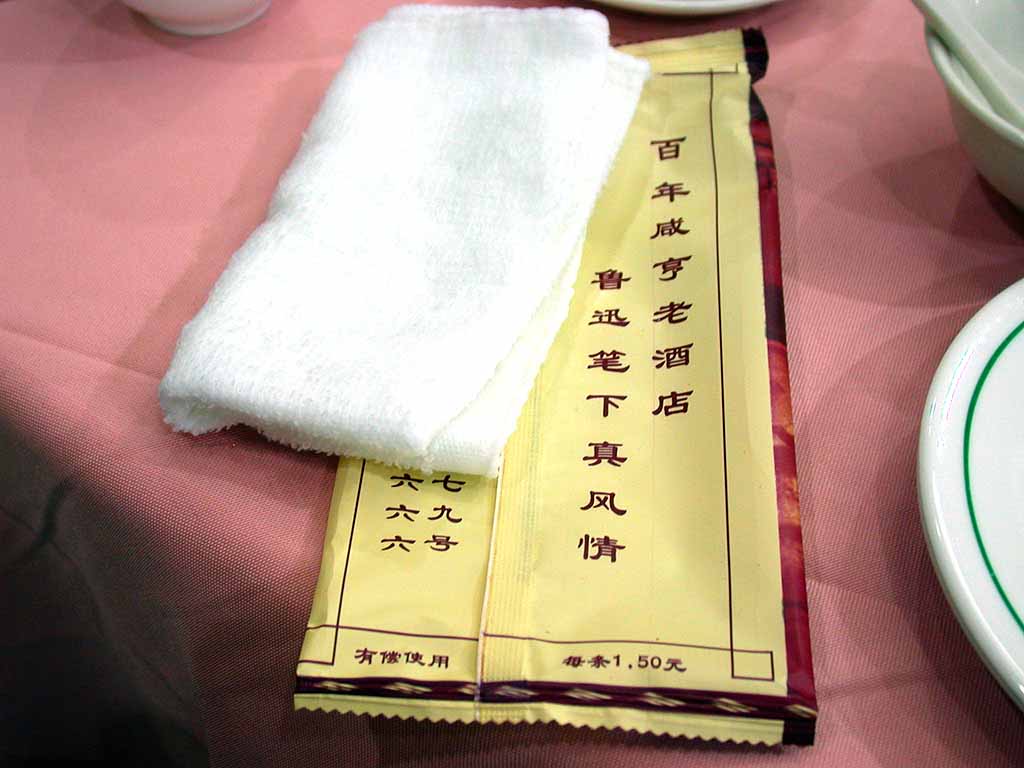 百年咸亨老酒店
鲁迅笔下真风情
七九号
六六六
有偿使用
每条1.50元